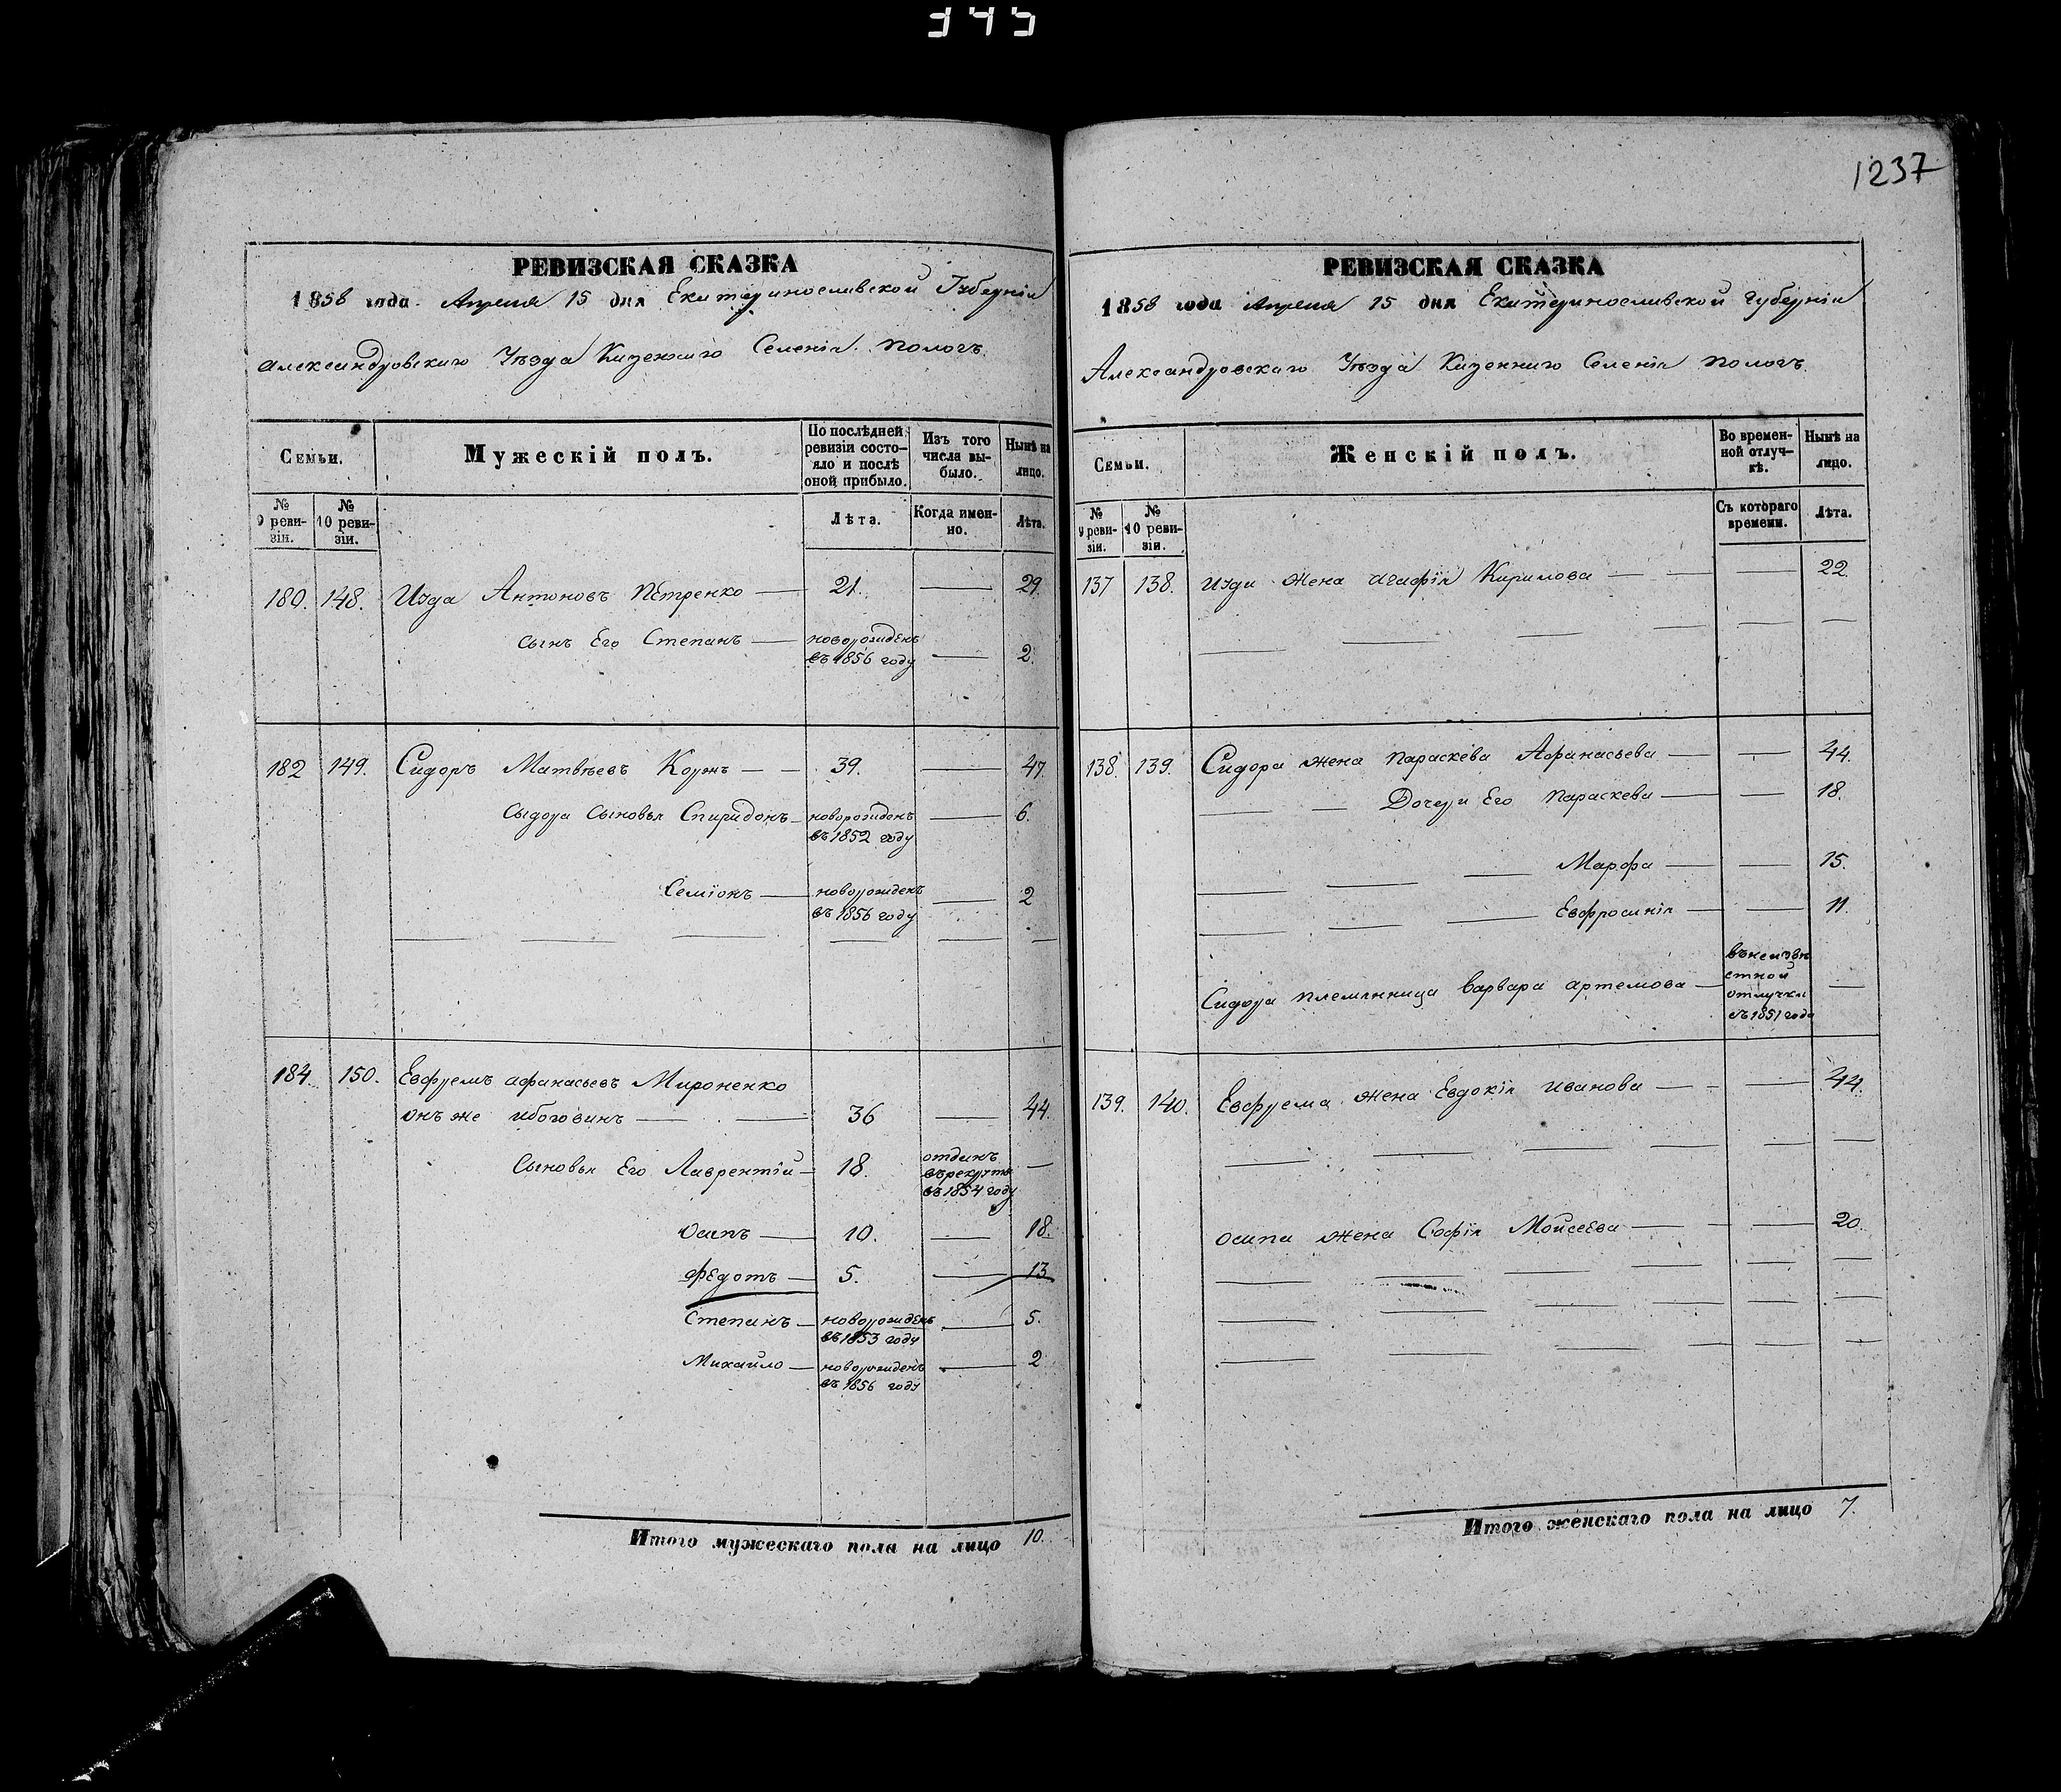 345
1237
РЕВИЗСКАЯ СКАЗКА
1858 года Апреля 15 дня Екатеринославской Губерніи
Александровскаго Уѣзда Казеннаго Селенія Пологъ.
Семьи.
Мужескій полъ.
По послѣдней ревизіи состояло и послѣ оной прибыло.
Изъ того числа выбыло.
Нынѣ на лицо.
№ 9 ревизіи.
№ 10 ревизіи.
Лѣта.
Когда именно.
Лѣта.
180. 148. Изда Антоновъ Петренко 21. 29.
сынъ Его Степанъ новорожденъ въ 1856 году 2.
182 149. Сидоръ Матвѣевъ Коржъ 39. 47.
Сыдора Сыновья Спиридонъ новорожденъ въ 1852 году 6.
Семіонъ новорожденъ въ 1856 году 2
184. 150. Евфремъ Афанасьевъ Мироненко
онъ же 36 44.
Сыновья Его Лаврентій 18. отданъ въ рекруты въ 1854 году
Осипъ 10. 18.
Федотъ 5. 13
Степанъ новорожденъ въ 1853 году 5.
Михайло новорожденъ въ 1856 году 2
Итого мужескаго пола на лицо 10.
РЕВИЗСКАЯ СКАЗКА
1858 года Апреля 15 дня Екатеринославской Губерніи
Александровскаго Уѣзда Казеннаго Селенія Пологъ.
Семьи.
Женскій полъ.
Во временной отлучкѣ.
Нынѣ на лицо.
№ 9 ревизіи.
№ 10 ревизіи.
Съ котораго времени.
Лѣта.
137 138. Изда жена Агафія Кирилова 22.
138. 139. Сидора жена Параскева Афанасьева 44.
Дочери Его Параскева 18.
Марфа 15.
Евфросинія 11.
Сидора племянница Варвара Артемова въ неизвѣстной отлучки съ 1851 года
139. 140. Евфрема жена Евдокія Иванова 44.
Осипа жена Софія Мойсеева 20.
Итого женскаго пола на лицо 7.